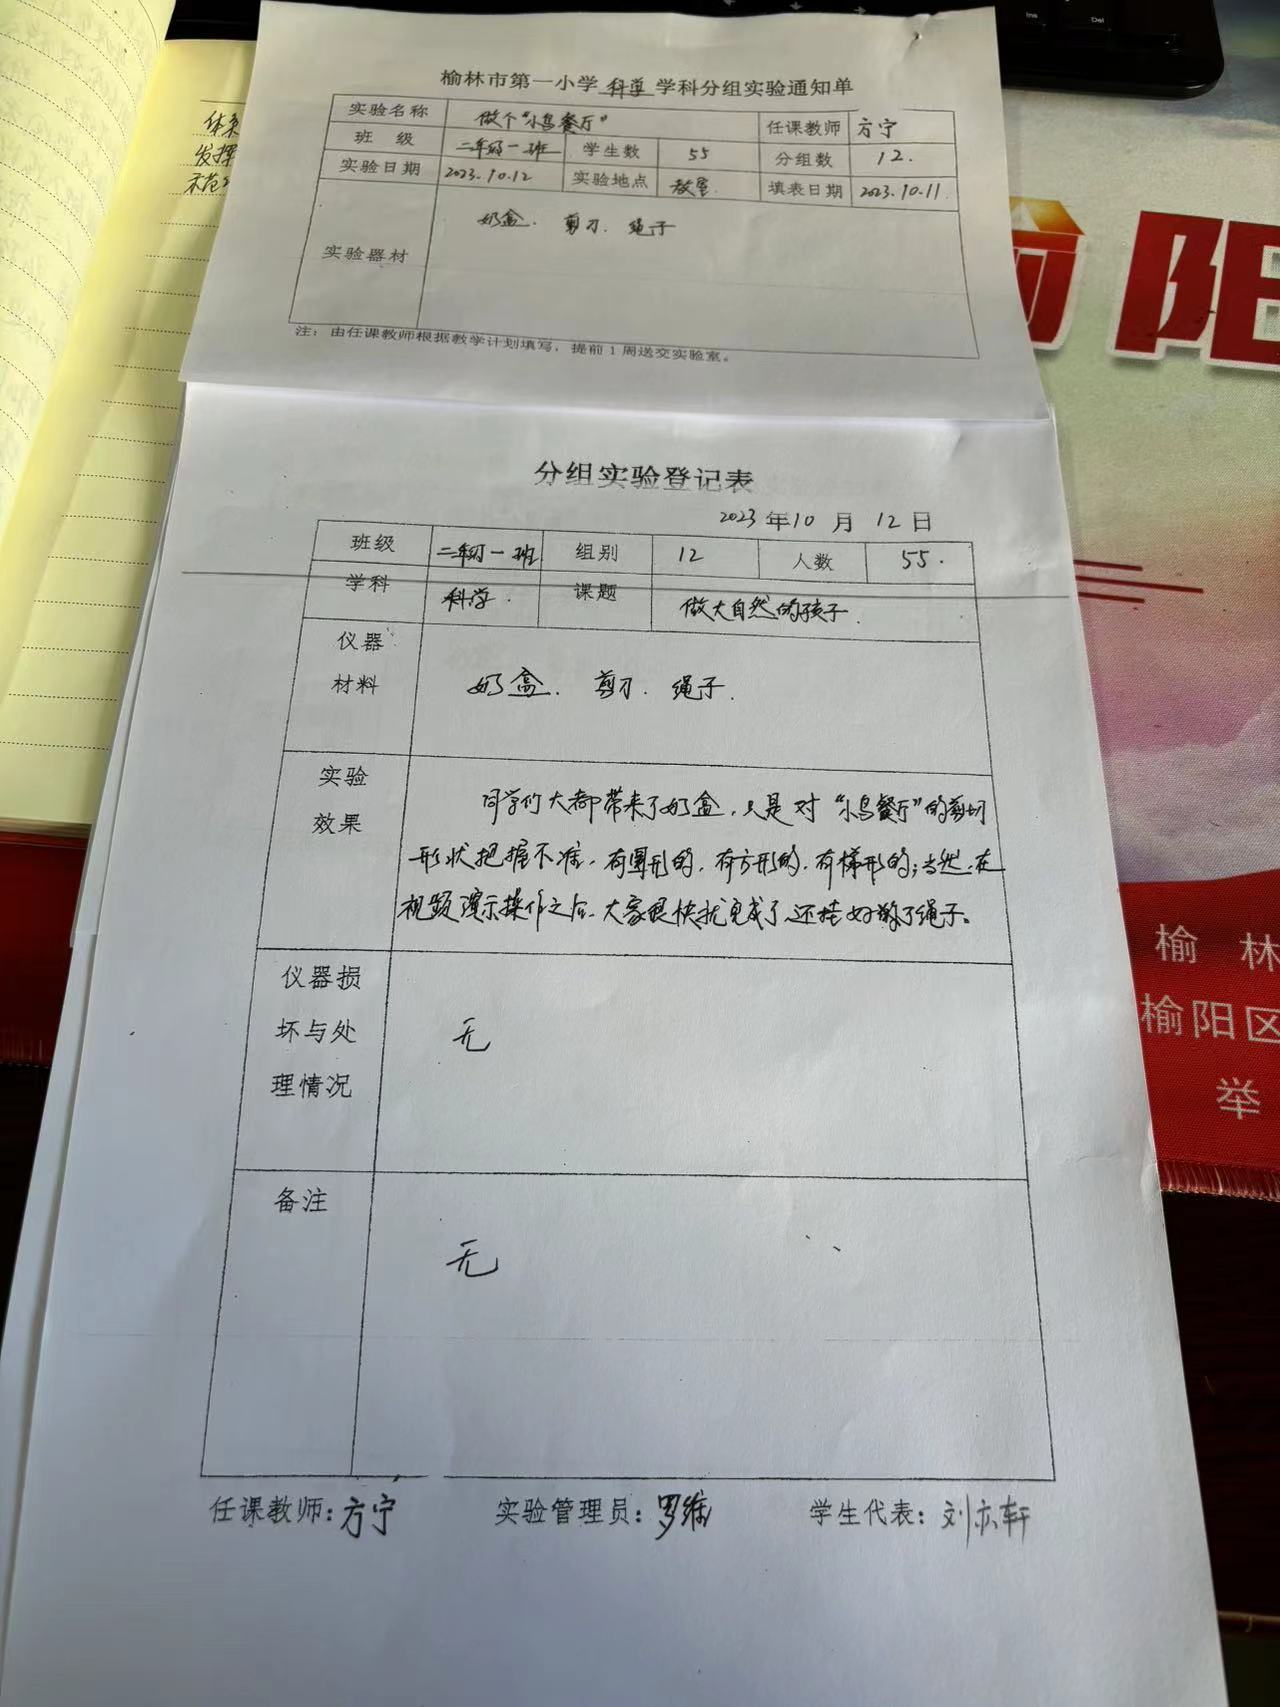 Ins
Del
体系
发挥
示范
榆林市第一小学 科学 学科分组实验通知单
实验名称 做个"小鸟餐厅" 任课教师 方宁
班 级 二年级一班 学生数 55 分组数 12.
实验日期 2023.10.12 实验地点 教室. 填表日期 2023.10.11.
实验器材 奶盒. 剪刀. 绳子
注：由任课教师根据教学计划填写，提前1周送交实验室。
阳
分组实验登记表
2023 年 10 月 12 日
班级 二年级一班 组别 12 人数 55.
学科 科学. 课题 做大自然的孩子.
仪器
材料
奶盒. 剪刀. 绳子.
实验
效果
同学们大都带来了奶盒，只是对"小鸟餐厅"的剪切
形状把握不准，有圆形的，有方形的，有梯形的；当然，在
视频演示操作之后，大家很快就完成了，还挂好了绳子。
仪器损
坏与处
理情况
无
备注
无
任课教师：方宁 实验管理员：罗维 学生代表：刘亦轩
榆 林
榆阳区
举